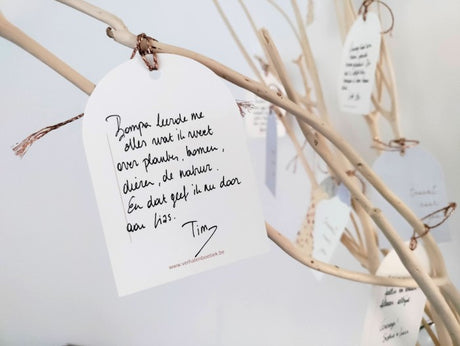 Bompa leerde me
alles wat ik weet
over planten, bomen,
dieren, de natuur.
En dat geef ik nu door
aan Kas.
Tim
www.verhalenbootiek.be